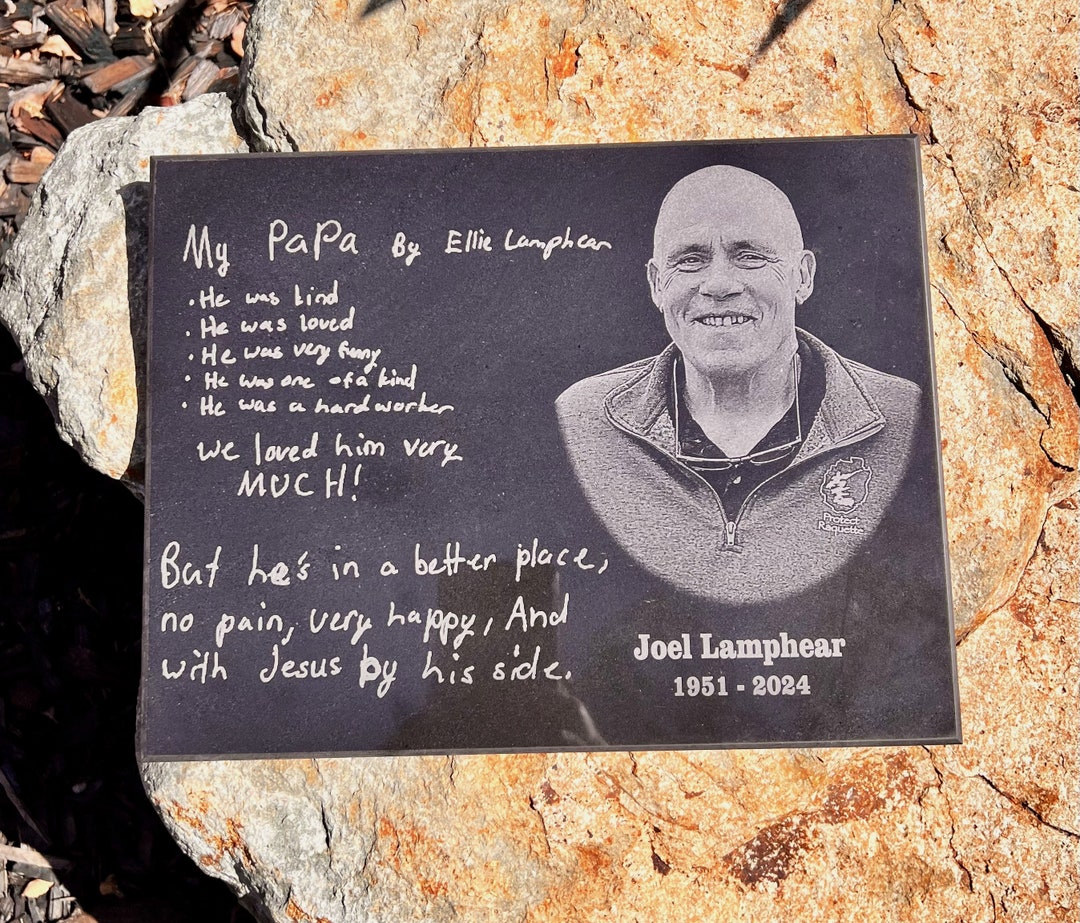 My PaPa By Ellie Lamphear
• He was kind
• He was loved
• He was very funny
• He was one of a kind
• He was a hard worker
we loved him very
MUCH!
But he's in a better place,
no pain, very happy, And
with Jesus by his side.
Protect
Raquette
Joel Lamphear
1951 - 2024